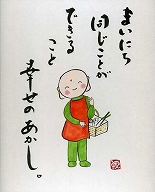 まいにち
同じことが
できる
こと
幸せのあかし。